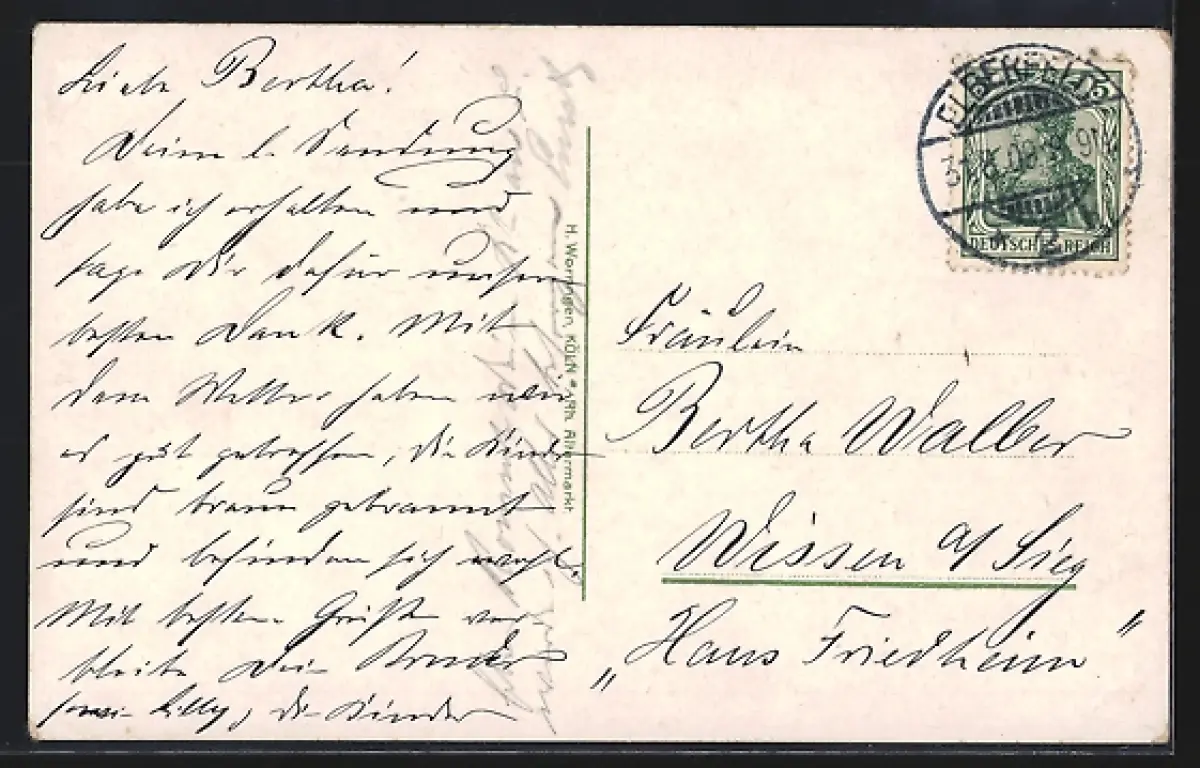 Liebe Bertha!
Deine l. Sendung
habe ich erhalten und
sage Dir dafür unsern
besten Dank. Mit
dem Wetter haben wir
es gut getroffen, die Kinder
sind braun gebrannt
und befinden sich wohl.
Mit besten Grüßen ver-
bleibe Dein Bruder
Lilly, die Kinder
H. Worringen, KÖLN a/Rh. Altermarkt
DEUTSCHES REICH
Fräulein
Bertha Walber
Wissen a/Sieg
„Haus Friedheim"